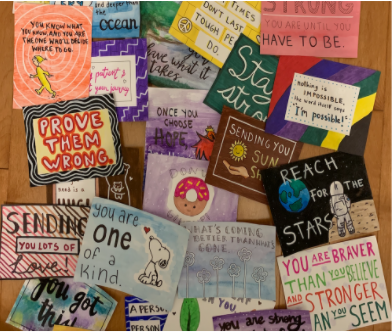 YOU KNOW WHAT
YOU KNOW. AND YOU
ARE THE ONE WHO'LL
DECIDE
WHERE TO GO.
and deeper than
the ocean
TIMES
DON'T LAST
TOUGH PE
DO.
STRONG
YOU ARE UNTIL YOU
HAVE TO BE.
patient
your journey
have what it
takes
Stay
strong
nothing is
IMPOSSIBLE,
the word itself says
"I'm possible!"
PROVE
THEM
WRONG.
ONCE YOU
CHOOSE
HOPE,
SENDING YOU
SUN
SH
need is a
HUG
DON'T
REACH
FOR THE
STARS
SENDING
YOU LOTS OF
Love!
you are
one
of a
kind.
WHAT'S COMING
BETTER THAN WHAT'S
GONE.
YOU ARE BRAVER
THAN YOU BELIEVE
AND STRONGER
THAN YOU SEEM
you got
this!
A PERSON'S
PERSON
YOU
you are strong